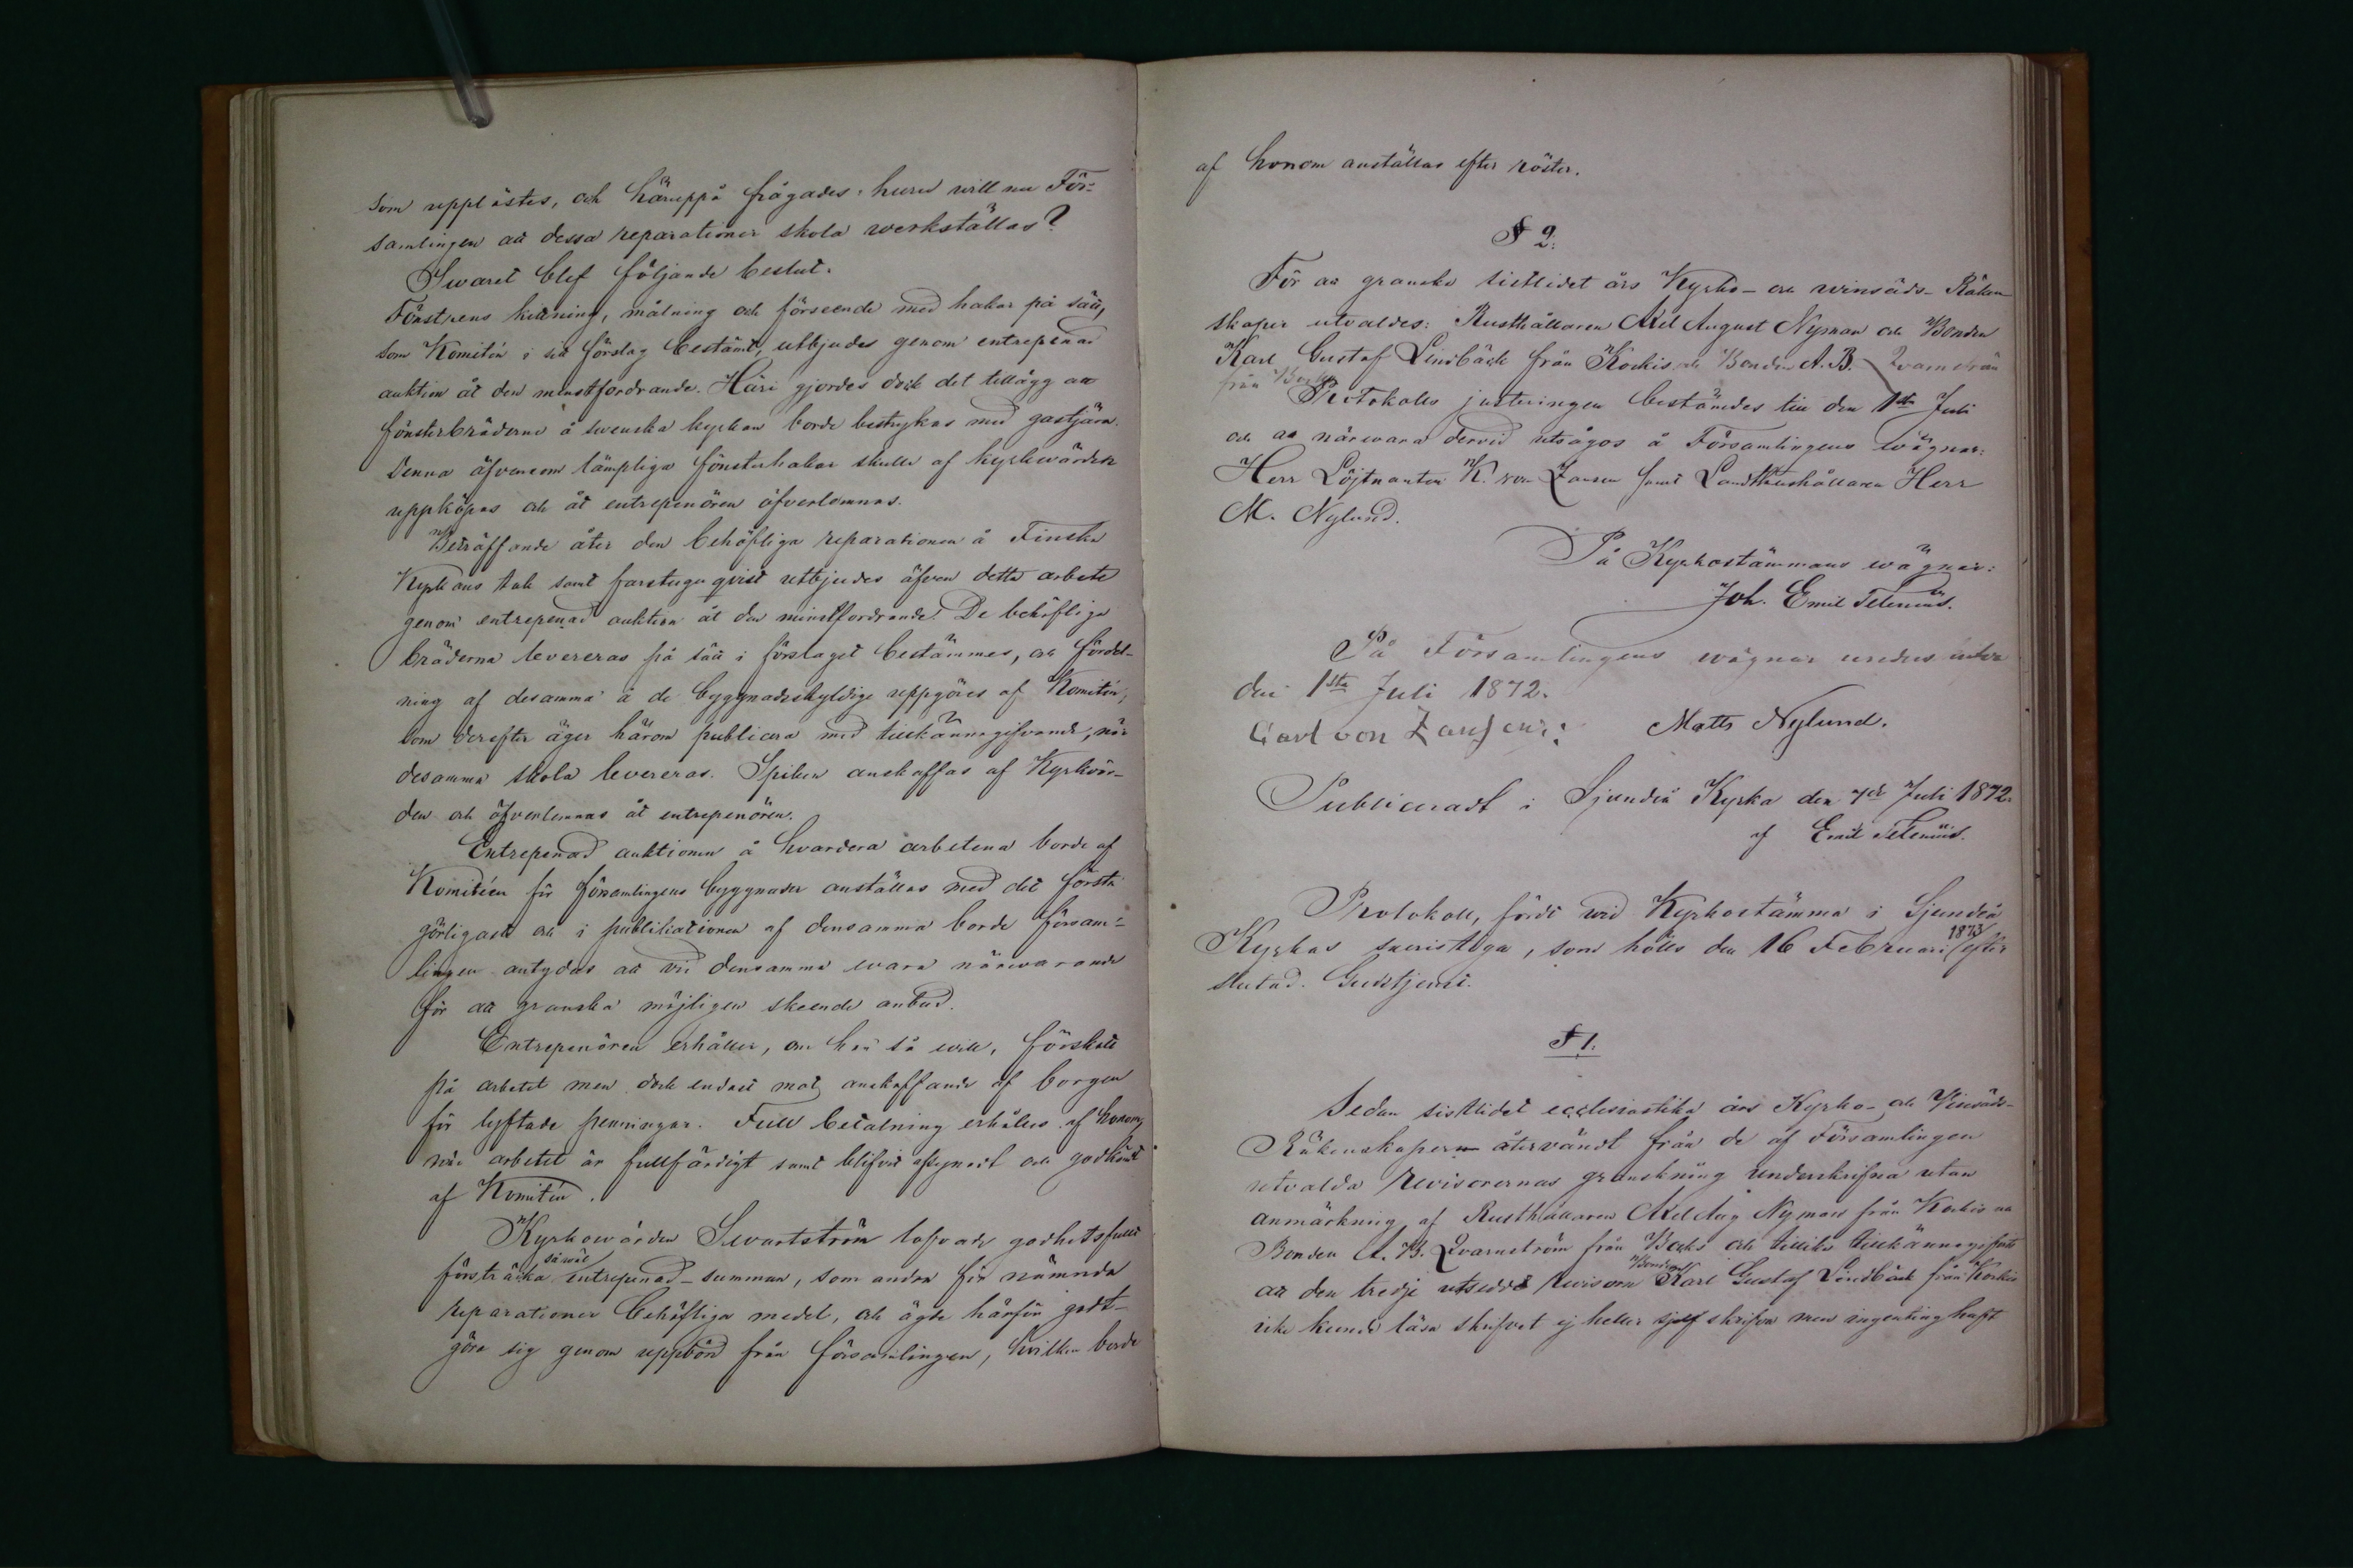 som upplästes, och häruppå frågades: huru will nu För-
samlingen att dessa reparationer skola werkställas?
Swaret blef följande beslut.
Fönstrens kittning, målning och förseende med hakar på sätt,
som Komitén i sitt förslag bestämt, utbjudes genom entrepenad
auktion åt den minstfordrande. Häri gjordes dock det tillägg att
fönsterbräderne å swenska kyrkan borde bestrykas med gastjära.
Denna äfvensom lämpliga fönsterhakar skulle af kyrkwärden
uppköpas och åt entrepenören öfverlemnas.
Beträffande åter den behöfliga reparationen å Finska
Kyrkans tak samt farstuguqvist utbjudes äfven detta arbete
genom entrepenad auktion åt den minstfordrande. De behöfliga
bräderna levereras på sätt i förslaget bestämmes, och fördel-
ning af desamma å de byggnadsskyldige uppgöres af Komitén,
som derefter äger härom publicera med tillkännagifvande, när
desamma skola levereras. Spiken anskaffas af Kyrkvär-
den och öfverlemnas åt entrepenören.
Entrepenad auktionen å hvardera arbetena borde af
Komitéen för församlingens byggnader anställas med det första
görligaste och i publikationen af densamma borde försam-
lingen antydas att vid densamma wara närwarande
för att granska möjligen skeende anbud.
Entrepenören erhåller, om han så will, förskott
på arbetet men dock endast mot anskaffande af borgen
för lyftade penningar. Full betalning erhålles af honom,
när arbetet är fullfärdigt samt blifvit afsynadt och godkändt
af Komitén.
Kyrkowärden Swartström lofvade godhetsfullt
försträcka såväl entrepenad-summan, som andra för nämnda
reparationer behöfliga medel, och ägde härför godt-
göra sig genom uppbörd från församlingen, hvilken borde
af honom anställas efter röster.
§ 2.
För att granska sistlidet års Kyrko- och winsäds- Räken-
skaper utvaldes: Rusthållaren Axel August Nyman och Bonden
Karl Gustaf Lindbäck från Kockis och Bonden A. B.
från Backs
Protokolls justeringen bestämdes till den 1sta Juli
och att närwara dervid utsågos å Församlingens wägnar:
Herr Löjtnanten K. von Zansen samt Landthushållaren Herr
M. Nylund.
På Kyrkostämmans wägnar:
Joh. Emil Telenius.
På Församlingens wägnar
den 1sta Juli 1872.
Carl von Zansen: Matts Nylund.
Publiceradt i Sjundeå Kyrka den 7de Juli 1872.
af Emil Telenius.
Protokoll, fördt wid Kyrkostämma i Sjundeå
Kyrkas sacristiga, som hölls den 16 Februari 1873 efter
slutad Gudstjenst.
§ 1.
Sedan sistlidet ecclesiastika års Kyrko- och Vinsäds-
Räkenskaper återvändt från de af Församlingen
utvalda Revisorernas granskning underskrifna utan
anmärkning af Rusthållaren Axel Aug Nyman från Kockis och
Bonden A. B. Qvarnström från Backs och tillika tillkännagifvits
att den tredje utsedde revisorn Bonden Karl Gustaf Lindbäck från Kockis
icke kunde läsa skrifvet ej heller sjelf skrifva men ingenting haft